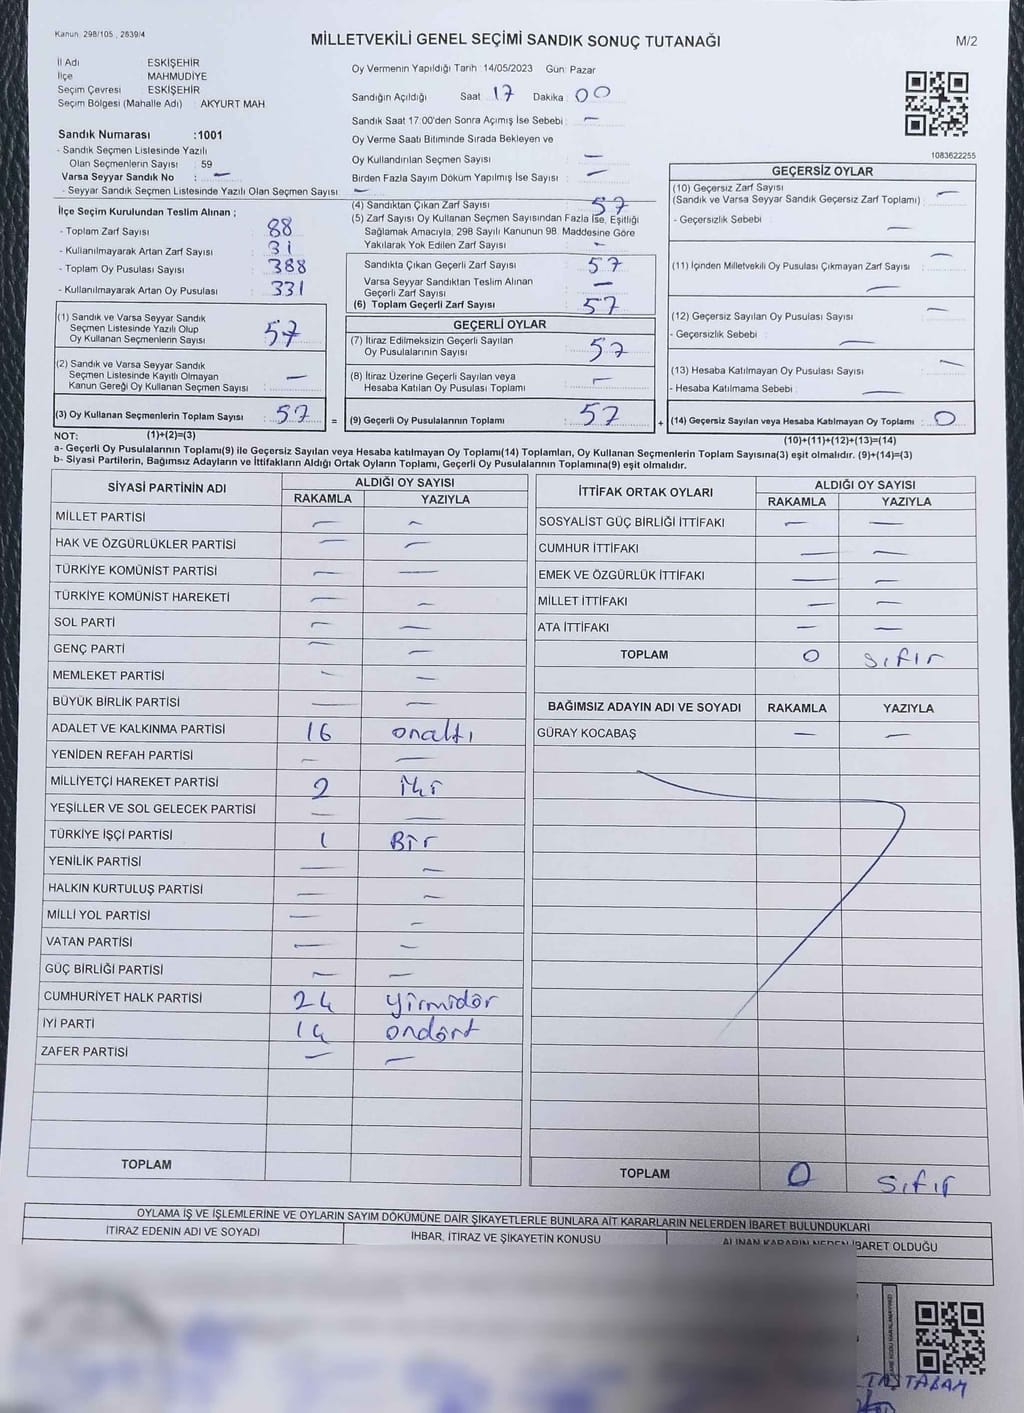 Kanun: 298/105, 2839/4
MİLLETVEKİLİ GENEL SEÇİMİ SANDIK SONUÇ TUTANAĞI
M/2
İl Adı : ESKİŞEHİR
İlçe : MAHMUDİYE
Seçim Çevresi : ESKİŞEHİR
Seçim Bölgesi (Mahalle Adı) : AKYURT MAH
Sandık Numarası :1001
- Sandık Seçmen Listesinde Yazılı
Olan Seçmenlerin Sayısı : 59
Varsa Seyyar Sandık No : —
- Seyyar Sandık Seçmen Listesinde Yazılı Olan Seçmen Sayısı: —
Oy Vermenin Yapıldığı Tarih: 14/05/2023 Gün: Pazar
Sandığın Açıldığı Saat 17 Dakika: 00
Sandık Saat 17:00'den Sonra Açımış İse Sebebi: —
Oy Verme Saati Bitiminde Sırada Bekleyen ve
Oy Kullandırılan Seçmen Sayısı : —
Birden Fazla Sayım Döküm Yapılmış İse Sayısı : —
1083622255
İlçe Seçim Kurulundan Teslim Alınan ;
- Toplam Zarf Sayısı : 88
- Kullanılmayarak Artan Zarf Sayısı : 31
- Toplam Oy Pusulası Sayısı : 388
- Kullanılmayarak Artan Oy Pusulası : 331
(1) Sandık ve Varsa Seyyar Sandık
Seçmen Listesinde Yazılı Olup
Oy Kullanan Seçmenlerin Sayısı : 57
(2) Sandık ve Varsa Seyyar Sandık
Seçmen Listesinde Kayıtlı Olmayan
Kanun Gereği Oy Kullanan Seçmen Sayısı : —
(3) Oy Kullanan Seçmenlerin Toplam Sayısı : 57
(4) Sandıktan Çıkan Zarf Sayısı : 57
(5) Zarf Sayısı Oy Kullanan Seçmen Sayısından Fazla İse, Eşitliği
Sağlamak Amacıyla, 298 Sayılı Kanunun 98. Maddesine Göre
Yakılarak Yok Edilen Zarf Sayısı : —
Sandıkta Çıkan Geçerli Zarf Sayısı : 57
Varsa Seyyar Sandıktan Teslim Alınan
Geçerli Zarf Sayısı : —
(6) Toplam Geçerli Zarf Sayısı : 57
GEÇERLİ OYLAR
(7) İtiraz Edilmeksizin Geçerli Sayılan
Oy Pusulalarının Sayısı : 57
(8) İtiraz Üzerine Geçerli Sayılan veya
Hesaba Katılan Oy Pusulası Toplamı : —
= (9) Geçerli Oy Pusulalarının Toplamı : 57
GEÇERSİZ OYLAR
(10) Geçersiz Zarf Sayısı
(Sandık ve Varsa Seyyar Sandık Geçersiz Zarf Toplamı) : —
- Geçersizlik Sebebi : —
(11) İçinden Milletvekili Oy Pusulası Çıkmayan Zarf Sayısı : —
—
(12) Geçersiz Sayılan Oy Pusulası Sayısı : —
- Geçersizlik Sebebi : —
(13) Hesaba Katılmayan Oy Pusulası Sayısı : —
- Hesaba Katılmama Sebebi : —
+ (14) Geçersiz Sayılan veya Hesaba Katılmayan Oy Toplamı : 0
NOT: (1)+(2)=(3)
(10)+(11)+(12)+(13)=(14)
a- Geçerli Oy Pusulalarının Toplamı(9) ile Geçersiz Sayılan veya Hesaba katılmayan Oy Toplamı(14) Toplamları, Oy Kullanan Seçmenlerin Toplam Sayısına(3) eşit olmalıdır. (9)+(14)=(3)
b- Siyasi Partilerin, Bağımsız Adayların ve İttifakların Aldığı Ortak Oyların Toplamı, Geçerli Oy Pusulalarının Toplamına(9) eşit olmalıdır.
SİYASİ PARTİNİN ADI ALDIĞI OY SAYISI
RAKAMLA YAZIYLA
MİLLET PARTİSİ — —
HAK VE ÖZGÜRLÜKLER PARTİSİ — —
TÜRKİYE KOMÜNİST PARTİSİ — —
TÜRKİYE KOMÜNİST HAREKETİ — —
SOL PARTİ — —
GENÇ PARTİ — —
MEMLEKET PARTİSİ — —
BÜYÜK BİRLİK PARTİSİ — —
ADALET VE KALKINMA PARTİSİ 16 onaltı
YENİDEN REFAH PARTİSİ — —
MİLLİYETÇİ HAREKET PARTİSİ 2 iki
YEŞİLLER VE SOL GELECEK PARTİSİ — —
TÜRKİYE İŞÇİ PARTİSİ 1 Bir
YENİLİK PARTİSİ — —
HALKIN KURTULUŞ PARTİSİ — —
MİLLİ YOL PARTİSİ — —
VATAN PARTİSİ — —
GÜÇ BİRLİĞİ PARTİSİ — —
CUMHURİYET HALK PARTİSİ 24 yirmidör
İYİ PARTİ 14 ondört
ZAFER PARTİSİ — —
TOPLAM
İTTİFAK ORTAK OYLARI ALDIĞI OY SAYISI
RAKAMLA YAZIYLA
SOSYALİST GÜÇ BİRLİĞİ İTTİFAKI — —
CUMHUR İTTİFAKI — —
EMEK VE ÖZGÜRLÜK İTTİFAKI — —
MİLLET İTTİFAKI — —
ATA İTTİFAKI — —
TOPLAM 0 sıfır
BAĞIMSIZ ADAYIN ADI VE SOYADI RAKAMLA YAZIYLA
GÜRAY KOCABAŞ — —
TOPLAM 0 sıfır
OYLAMA İŞ VE İŞLEMLERİNE VE OYLARIN SAYIM DÖKÜMÜNE DAİR ŞİKAYETLERLE BUNLARA AİT KARARLARIN NELERDEN İBARET BULUNDUKLARI
İTİRAZ EDENİN ADI VE SOYADI İHBAR, İTİRAZ VE ŞİKAYETİN KONUSU ALINAN KARARIN NEDEN İBARET OLDUĞU